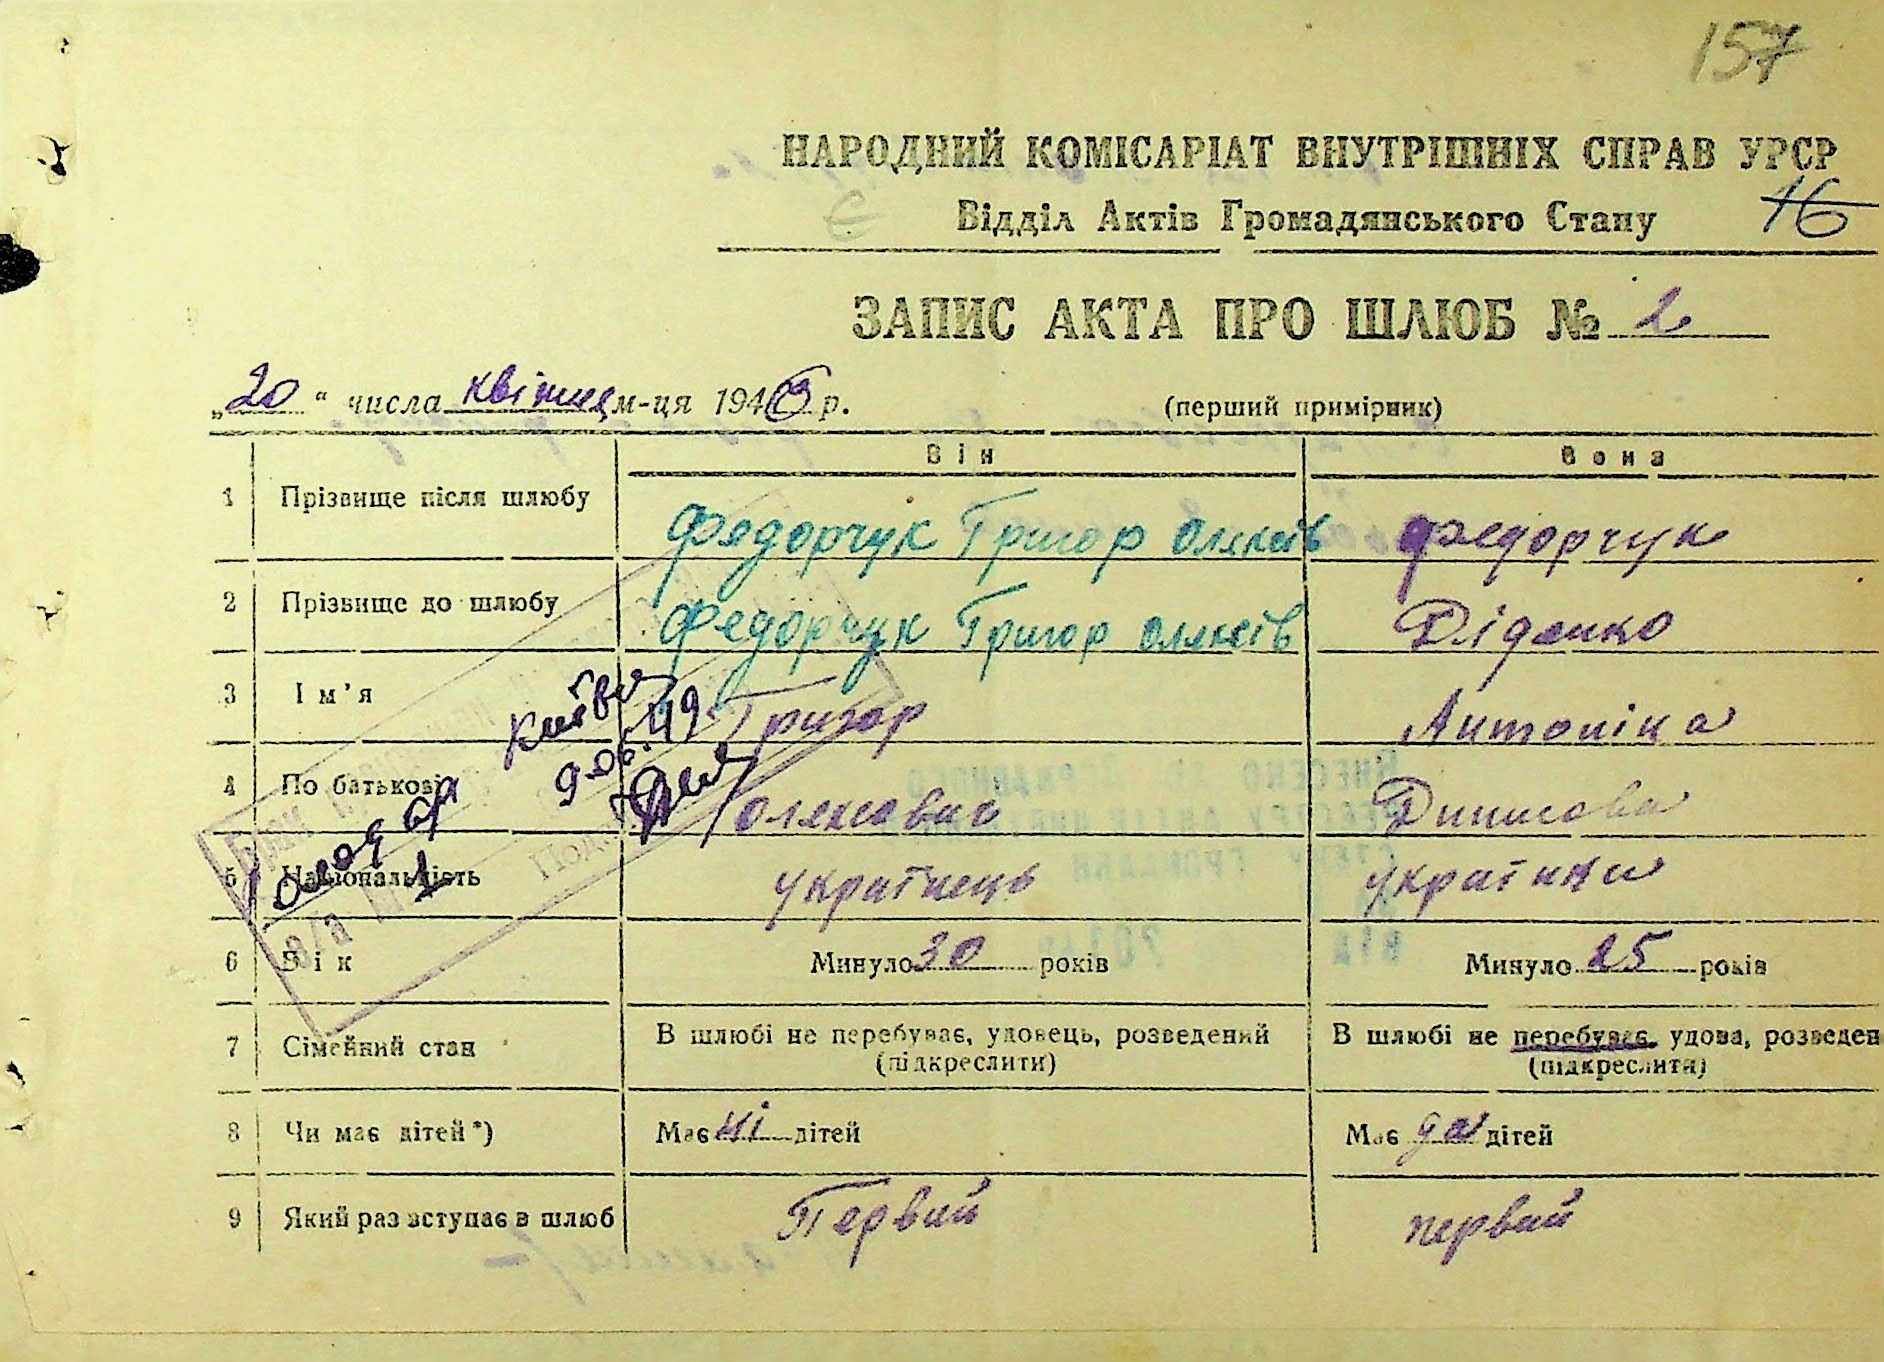 157
НАРОДНИЙ КОМІСАРІАТ ВНУТРІШНІХ СПРАВ УРСР
Відділ Актів Громадянського Стану 16
ЗАПИС АКТА ПРО ШЛЮБ № 2
„20“ числа квітня м-ця 194 р. (перший примірник)
Він Вона
1 Прізвище після шлюбу Федорчук Григор Олексів Федорчук
2 Прізвище до шлюбу Федорчук Григор Олексів Діденко
3 Ім'я Григор Антоніна
4 По батькові Олексавич Динисова
5 Національність українець українка
6 Вік Минуло 30 років Минуло 25 років
7 Сімейний стан В шлюбі не перебуває, удовець, розведений В шлюбі не перебуває, удова, розведен
(підкреслити) (підкреслити)
8 Чи має дітей*) Має ні дітей Має да дітей
9 Який раз вступає в шлюб Первий первий